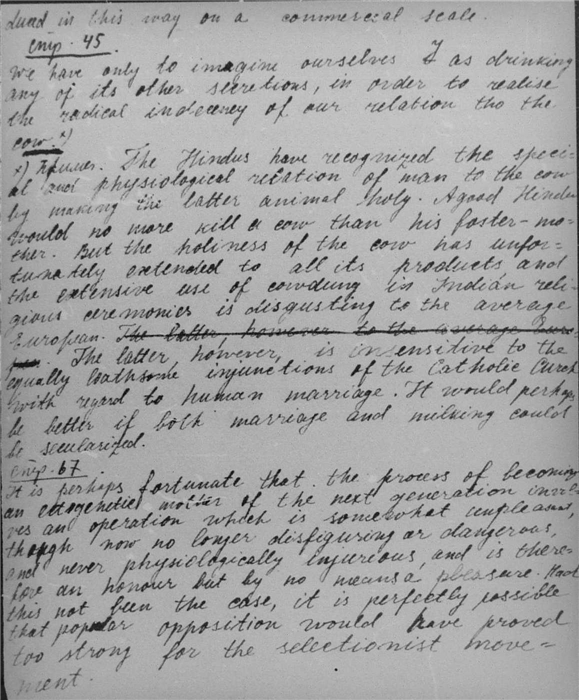 duced in this way on a commercial scale.
стр. 45.
We have only to imagine ourselves as drinking
any of its other secretions, in order to realise
the radical indecency of our relation tho the
cow.*)
*) The Hindus have recognized the speci-
al and physiological relation of man to the cow
by making the latter animal holy. A good Hindu
would no more kill a cow than his foster-mo-
ther. But the holiness of the cow has unfor-
tunately extended to all its products, and
the extensive use of cowdung in Indian reli-
gious ceremonies is disgusting to the average
European. The latter, however to the average Euro-
The latter, however, is insensitive to the
equally loathsome injunctions of the Catholic Curch
with regard to human marriage. It would perhaps
be better if both marriage and milking could
be secularized.
стр. 67.
It is perhaps fortunate that the process of becoming
an ectogenetic mother of the next generation invol-
ves an operation which is somewhat unpleasant,
though now no longer disfiguring or dangerous,
and never physiologically injurious, and is there-
fore an honour but by no means a pleasure. Had
this not been the case, it is perfectly possible
that popular opposition would have proved
too strong for the selectionist move-
ment.